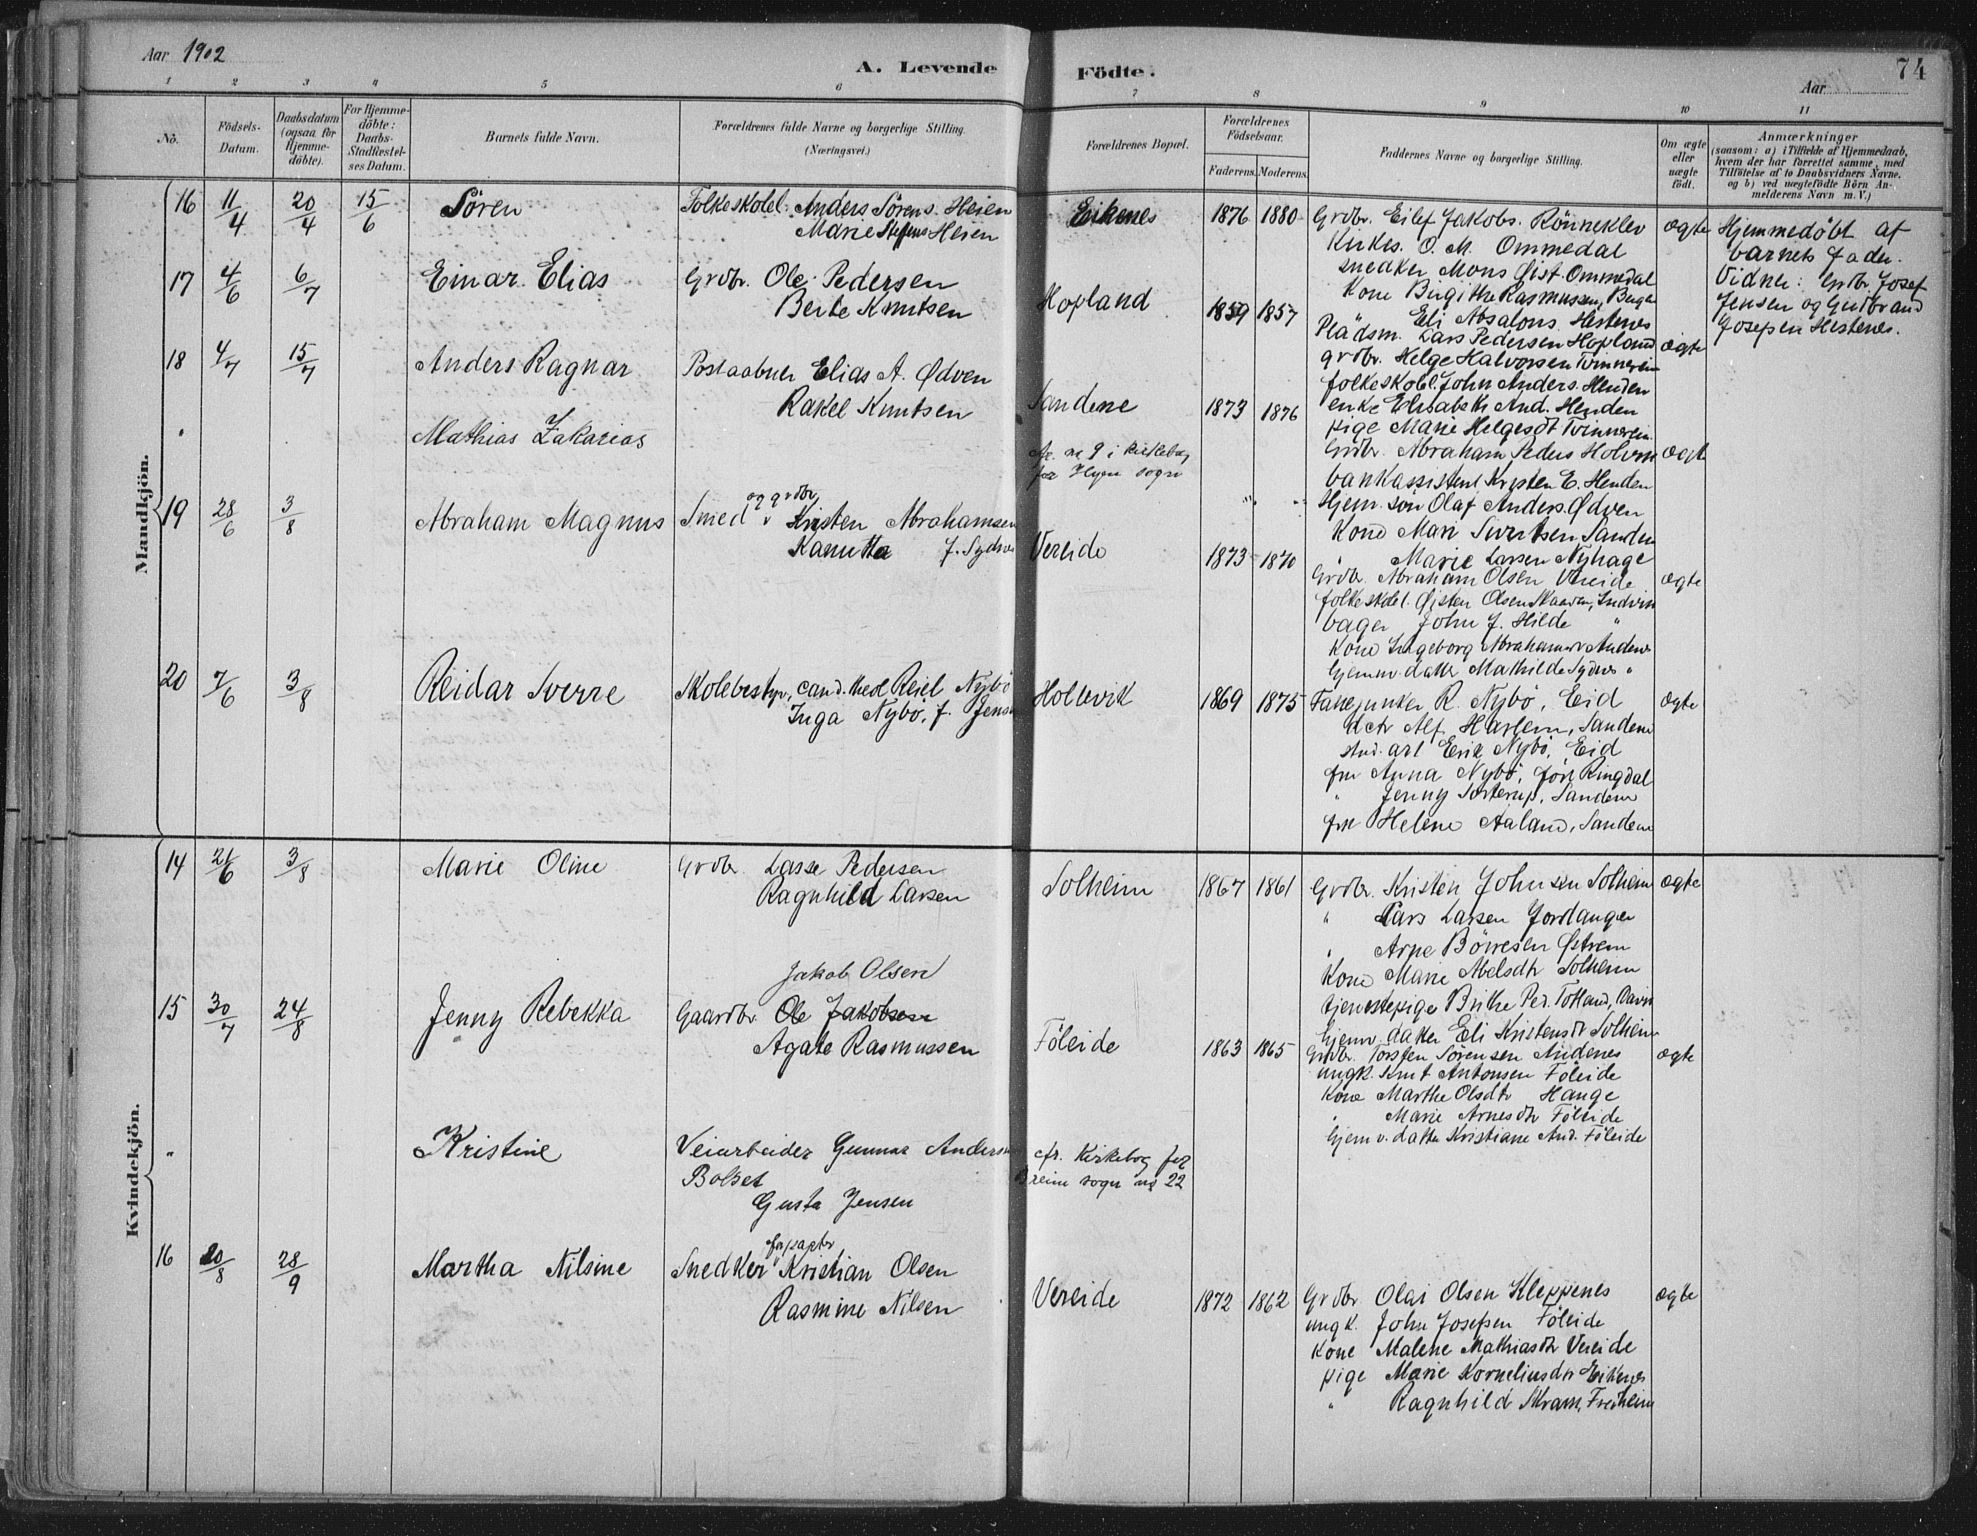 Aar 1902
A. Levende Födte.
Aar
74
1 2 3 4 5 6 7 8 9 10 11
No.
Födsels-Datum.
Daabsdatum (ogsaa for Hjemmedöbte).
For Hjemmedöbte: Daabs-Stadfæstelses Datum.
Barnets fulde Navn.
Forældrenes fulde Navne og borgerlige Stilling.
(Næringsvei.)
Forældrenes Bopæl.
Forældrenes Födselsaar.
Faderens. Moderens.
Faddernes Navne og borgerlige Stilling.
Om ægte eller uægte födt.
Anmærkninger
(saasom: a) i Tilfælde af Hjemmedaab,
hvem der har forrettet samme, med
Tilföielse af to Daabsvidners Navne.
og b) ved uægtefödte Börn An-
melderens Navn m. V.)
Mandkjön.
16 11/4 20/4 15/6 Sören
Folkeskolel. Anders Sörens. Heien
Marie Steffens Heien
Eikenes 1876 1880
Grdbr. Eilef Jakobs. Rönneklev
Kirkes. O. M. Ommedal
snedker Mons Øist. Ommedal
Kone Birgithe Rasmussen,
Eli Absalons. Hestenes
ægte
Hjemmedöbt af
barnets fader.
Vidner: Grdbr. Josef
Jensen og Gudbrand
Josefsen Hestenes.
17 4/6 6/7 Einar Elias
Grdbr. Ole Pedersen
Berte Knutsen
Hopland 1859 1857
Plådsm. Lars Pedersen Hopland
grdbr. Helge Halvorsen Tvinnereim
folkeskolel. John Anders. Henden
enke Elisabeth And. Henden
pige Marie Helgesdt Tvinnereim
ægte
18 4/7 15/7 Anders Ragnar
Postaabner Elias A. Ødven
Rakel Knutsen
Sandene 1873 1876
Grdbr. Abraham Peders Holvik
bankassistent Kristen E. Henden
Hjem. sön Olaf Anders. Ødven
Kone Mari Sivertsen Sanden
" Marie Larsen Nyhage
ægte
" Mathias Zakarias
Cfr. no 9 i kirkebog
for Hyen sogn
" "
19 28/6 3/8 Abraham Magnus
og grdbr.
Smed v Kristen Abrahamsen
Kanutta f. Sydnes
Vereide 1873 1870
Grdbr. Abraham Olsen Vereide
folkeskolel. Øisten Olsen Skaaden, Indvik
bager John J. Hilde "
Kone Ingeborg Abrahamsen Andenes
Hjemmv. datter Mathilde Sydnes "
ægte
20 7/6 3/8 Reidar Sverre
Skolebestyr, cand. theol Reiel Nybö
Inga Nybö, f. Jensen
Hollevik 1869 1875
Fanejunker R. Nybö, Eid
Alf Harlem, Sandene
stud. art Erik Nybö, Eid
fru Anna Nybö, Ringdal
" Jenny Sosterup, Sandene
frk Helene Aaland, Sandene
ægte
Kvindekjön.
14 21/6 3/8 Marie Oline
Grdbr. Lasse Pedersen
Ragnhild Larsen
Solheim 1867 1861
Grdbr. Kristen Johnsen Solheim
" Lars Larsen Jordanger
" Arne Börresen Østrem
Kone Marie Abelsdtr Solheim
tjenestepige Brithe Ped. Totland, Davik
Hjemv. datter Eli Kristensdr Solheim
ægte
15 30/7 24/8 Jenny Rebekka
Jakob Olsen
Gaardbr Ole Jakobsen
Agate Rasmussen
Föleide 1863 1865
Grdbr. Torsten Sörensen Andenes
ungk. Knut Antonsen Föleide
Kone Marthe Olsdtr Hauge
" Marie Arnesdtr Föleide
hjem v. datter Kristiane And. Föleide
ægte
" Kristine
Veiarbeider Gunnar Andersen
Bolset
Gusta Jensen
cfr. Kirkebog for
Breim sogn no 22
16 20/8 28/9 Martha Nilsine
forpagter
Snedker v Kristian Olsen
Rasmine Nilsen
Vereide 1872 1862
Grdbr. Olai Olsen Kleppenes
ungk. John Josefsen Föleide
Kone Malene Mathiasdtr Vereide
pige Marie Korneliusdtr Eikenes
" Ragnhild Skram, Fredheim
ægte